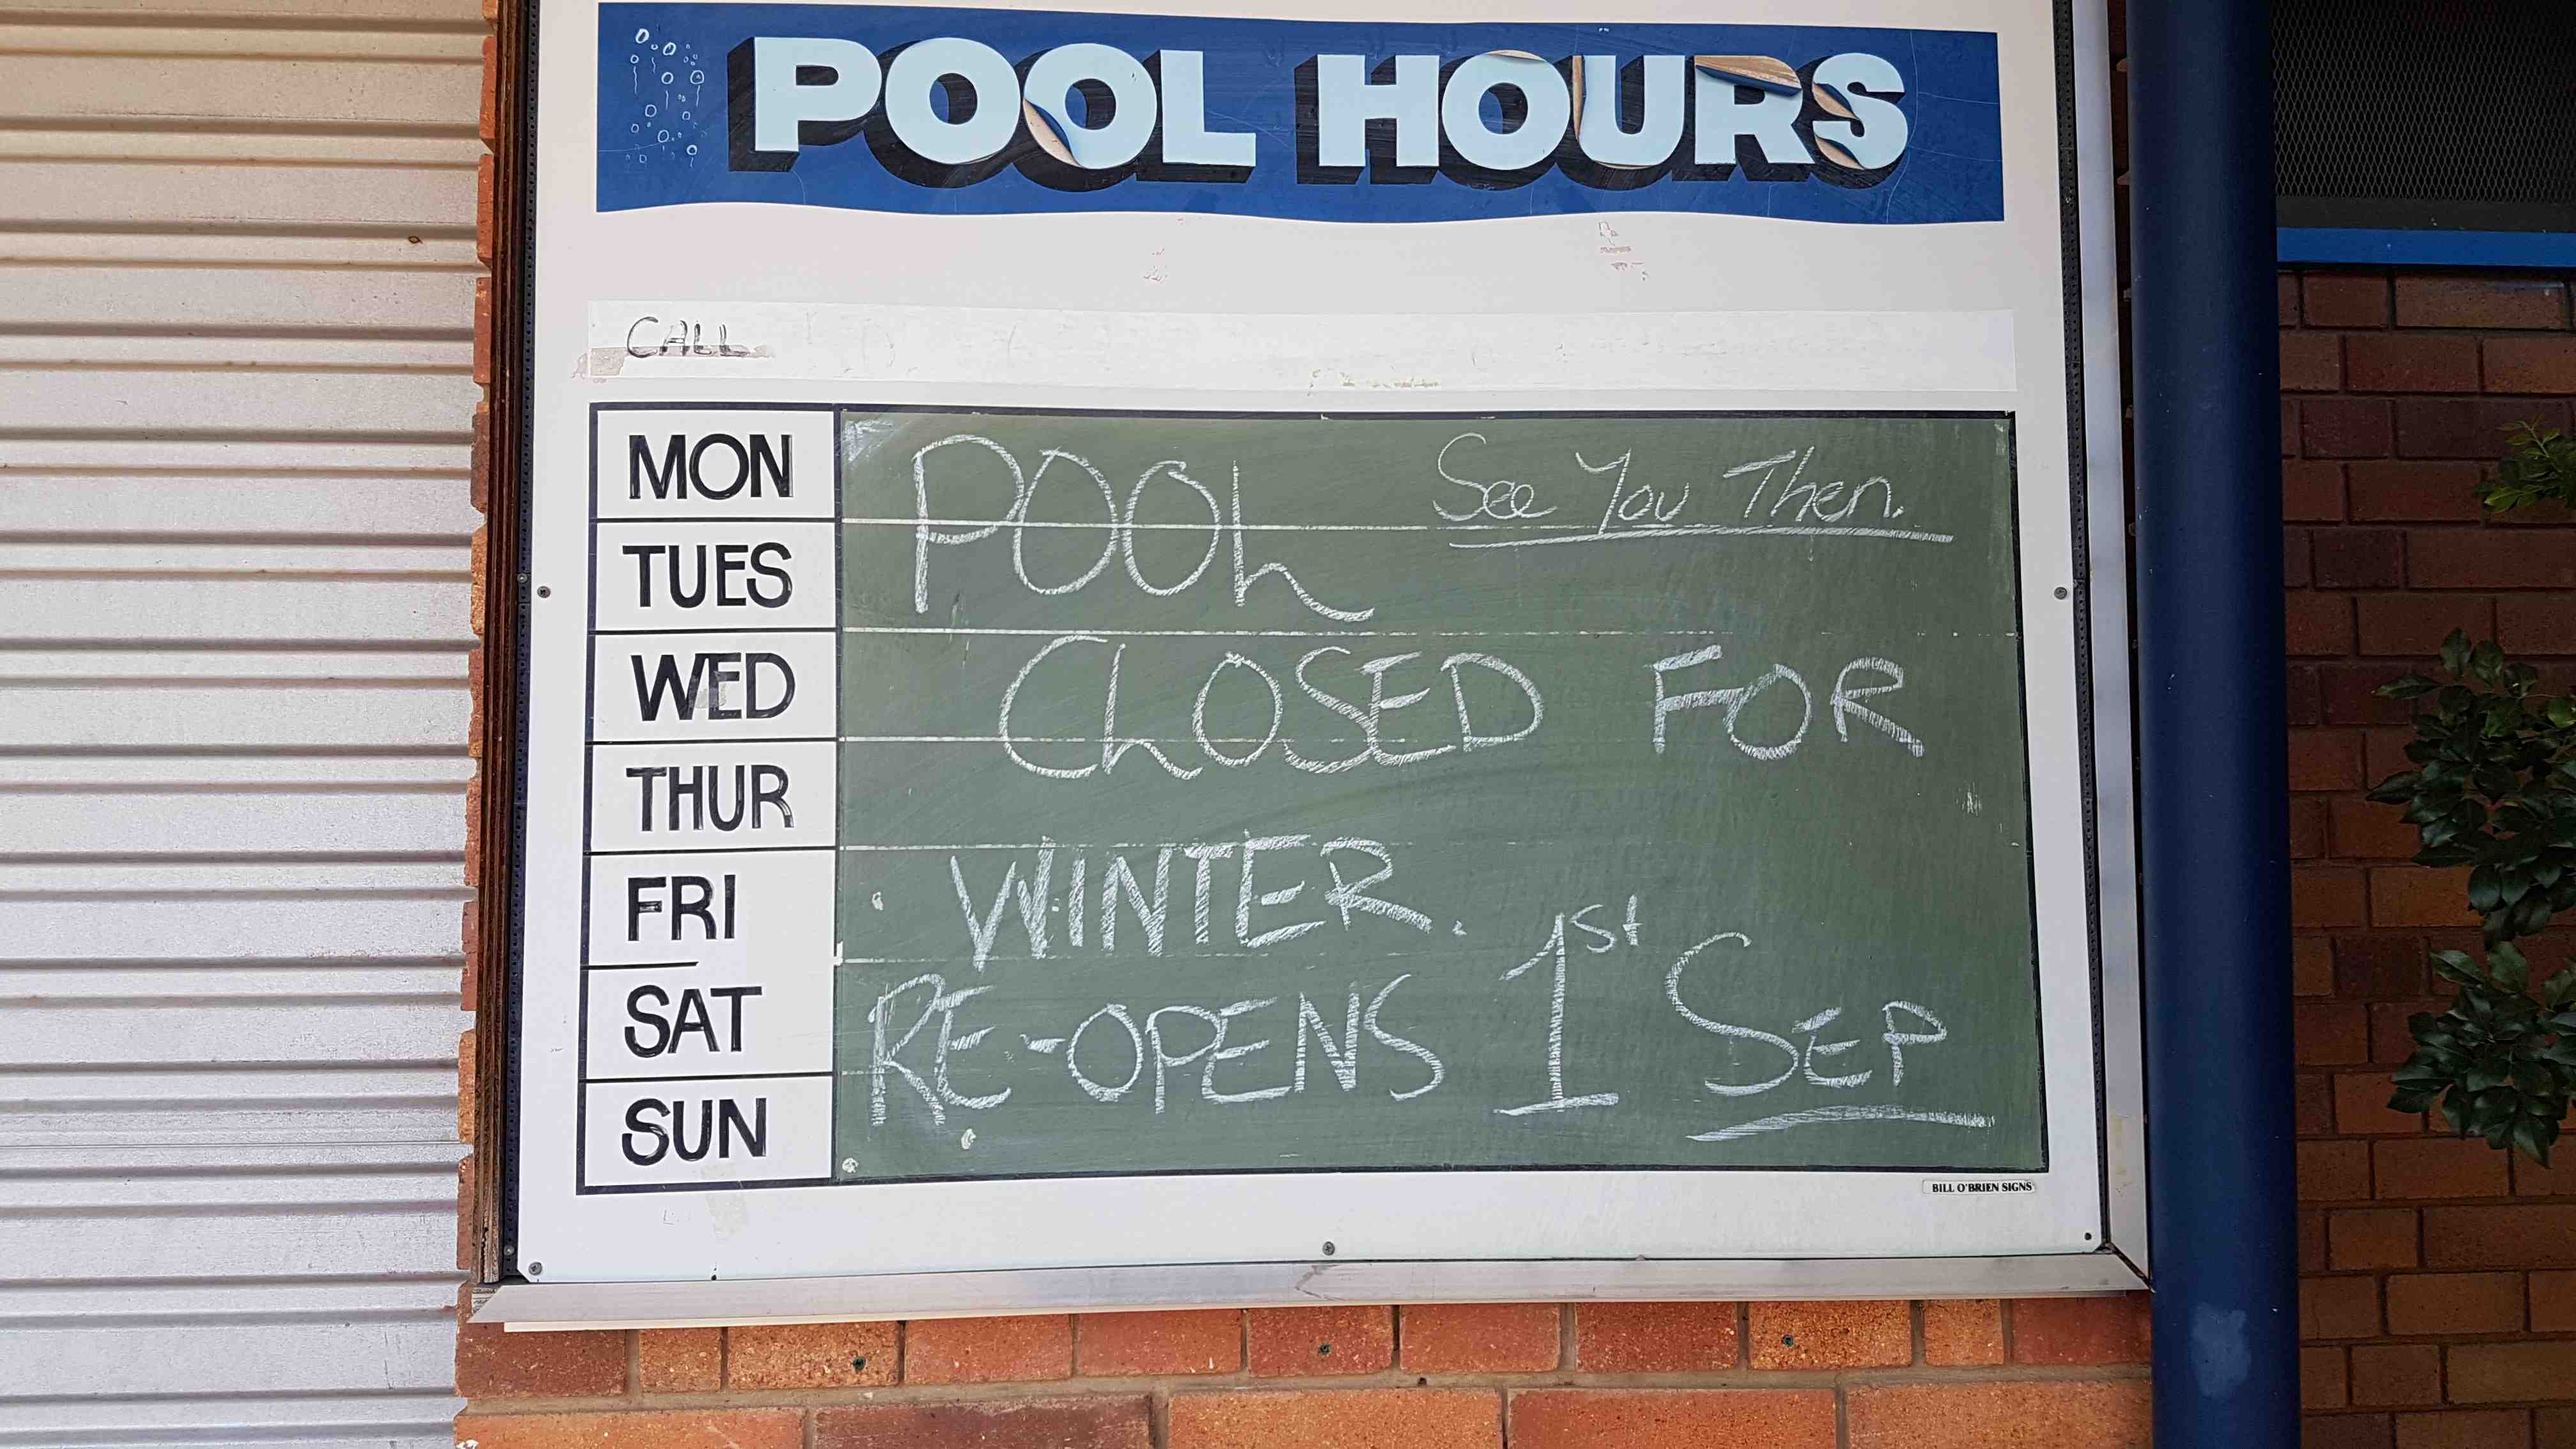 POOL HOURS
CALL
MON
TUES
WED
THUR
FRI
SAT
SUN
POOL
See You Then.
CLOSED FOR
WINTER.
RE-OPENS 1st SEP
BILL O'BRIEN SIGNS